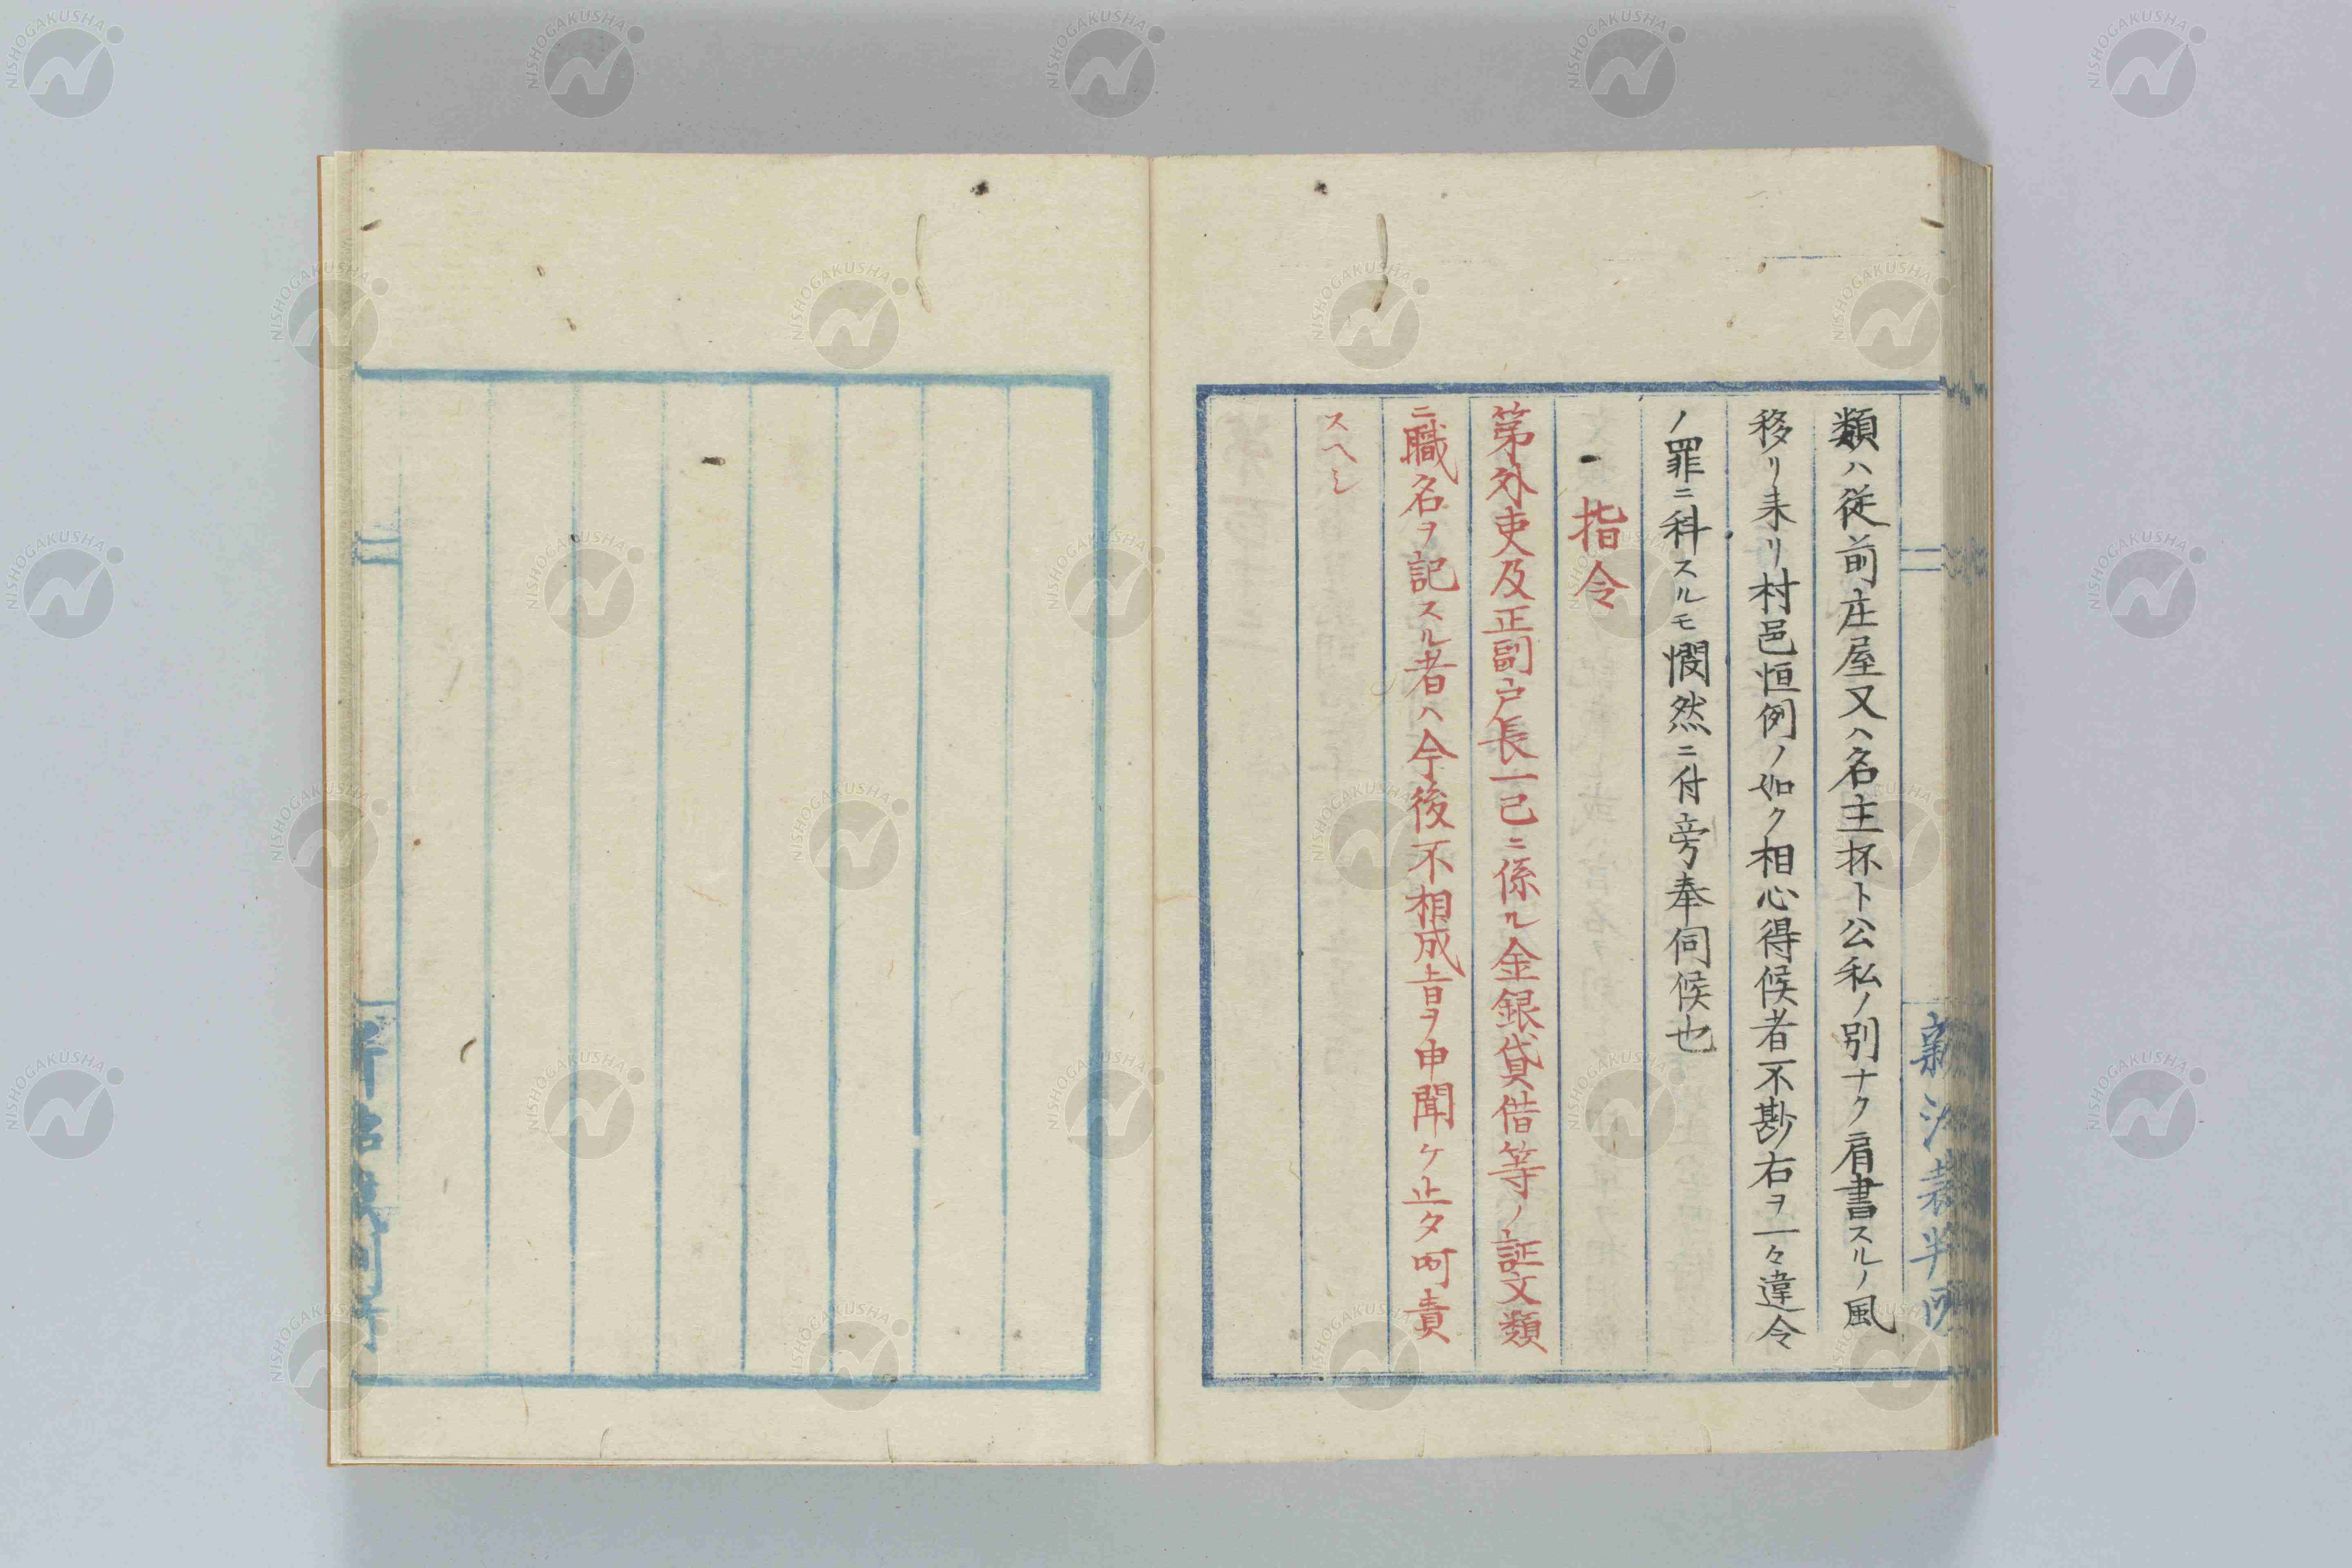 類ハ従前庄屋又ハ名主抔ト公私ノ別ナク肩書スルノ風
移リ来リ村邑恒例ノ如ク相心得候者不尠右ヲ一々違令
ノ罪ニ科スルモ憫然ニ付旁奉伺候也
指令
等外吏及正副戸長一己ニ係ル金銀貸借等ノ証文類
ニ職名ヲ記スル者ハ今後不相成旨ヲ申聞ケ止タ呵責
スヘシ
新治裁判所
NISHOGAKUSHA